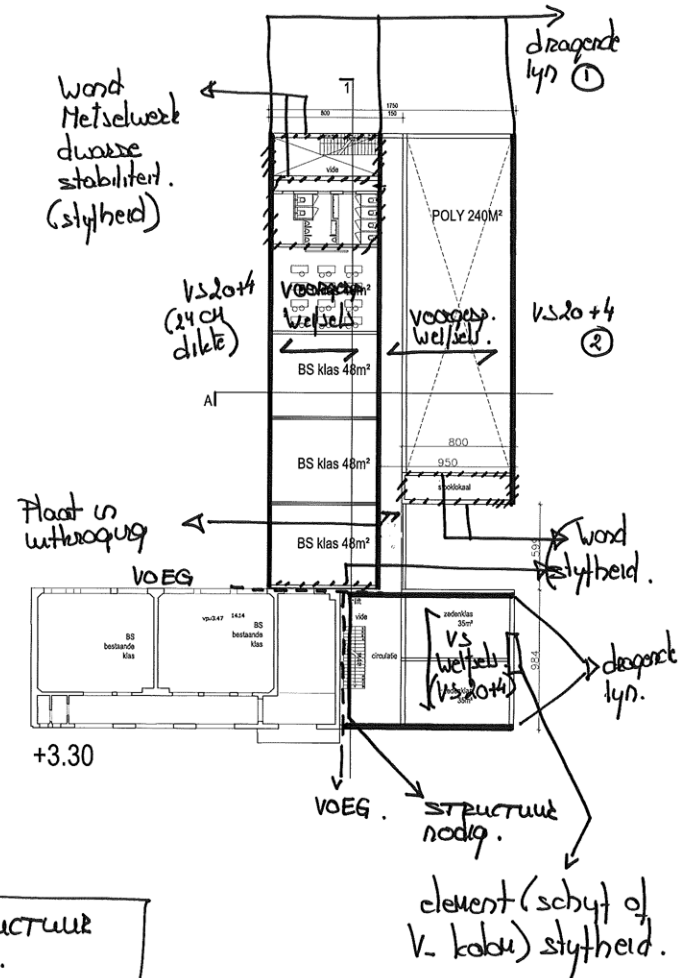 dragende
lyn ①
Wand
Metselwerk
dwarse
stabiliteit.
(stytheid)
1
1750
800
150
vide
POLY 240M²
VS20+4
(24CM
dikte)
voorgesp.
welfsels
voorgesp.
welfsels.
VS20+4
②
BS klas 48m²
A
BS klas 48m²
800
950
stooklokaal
Plaat in
uitkraging
BS klas 48m²
599
Wand
stytheid.
VOEG
BS
bestaande
klas
vp=3.47
14.14
BS
bestaande
klas
lift
vide
circulatie
zedenklas
35m²
VS
welfsels.
(VS20+4)
zedenklas
35m²
984
dragende
lyn.
+3.30
VOEG.
STRUCTUUR
nodig.
element (schyf of
V- kolom) stytheid.
UCTUUR